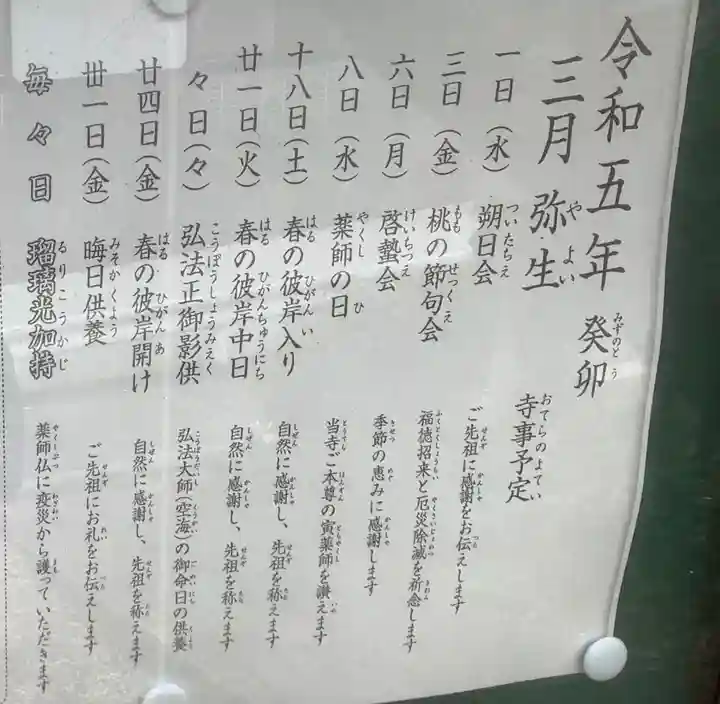 令和五年 癸卯
三月 弥生 寺事予定
一日(水) 朔日会 ご先祖に感謝をお伝えします
三日(金) 桃の節句会 福徳招来と厄災除滅を祈念します
六日(月) 啓蟄会 季節の恵みに感謝します
八日(水) 薬師の日 当寺ご本尊の寅薬師を讃えます
十八日(土) 春の彼岸入り 自然に感謝し、先祖を称えます
廿一日(火) 春の彼岸中日 自然に感謝し、先祖を称えます
々日(々) 弘法正御影供 弘法大師(空海)の御命日の供養
廿四日(金) 春の彼岸開け 自然に感謝し、先祖を称えます
丗一日(金) 晦日供養 ご先祖にお礼をお伝えします
毎々日 瑠璃光加持 薬師仏に疫災から護っていただきます